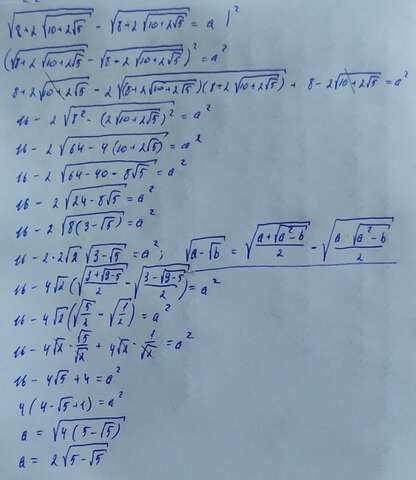 √(8+2√(10+2√5)) - √(8+2√(10+2√5)) = a |²
(√(8+2√(10+2√5)) - √(8+2√(10+2√5)))² = a²
8+2√(10+2√5) - 2√((8+2√(10+2√5))(8+2√(10+2√5))) + 8-2√(10+2√5) = a²
16 - 2√(8² - (2√(10+2√5))²) = a²
16 - 2√(64 - 4(10+2√5)) = a²
16 - 2√(64-40-8√5) = a²
16 - 2√(24-8√5) = a²
16 - 2√(8(3-√5)) = a²
16 - 2·2√2 √(3-√5) = a² ; √(a-√b) = √((a+√(a²-b))/2) - √((a-√(a²-b))/2)
16 - 4√2(√((3+√(9-5))/2) - √((3-√(9-5))/2)) = a²
16 - 4√2(√(5/2) - √(1/2)) = a²
16 - 4√2·√5/√2 + 4√2·1/√2 = a²
16 - 4√5 + 4 = a²
4(4-√5+1) = a²
a = √(4(5-√5))
a = 2√(5-√5)